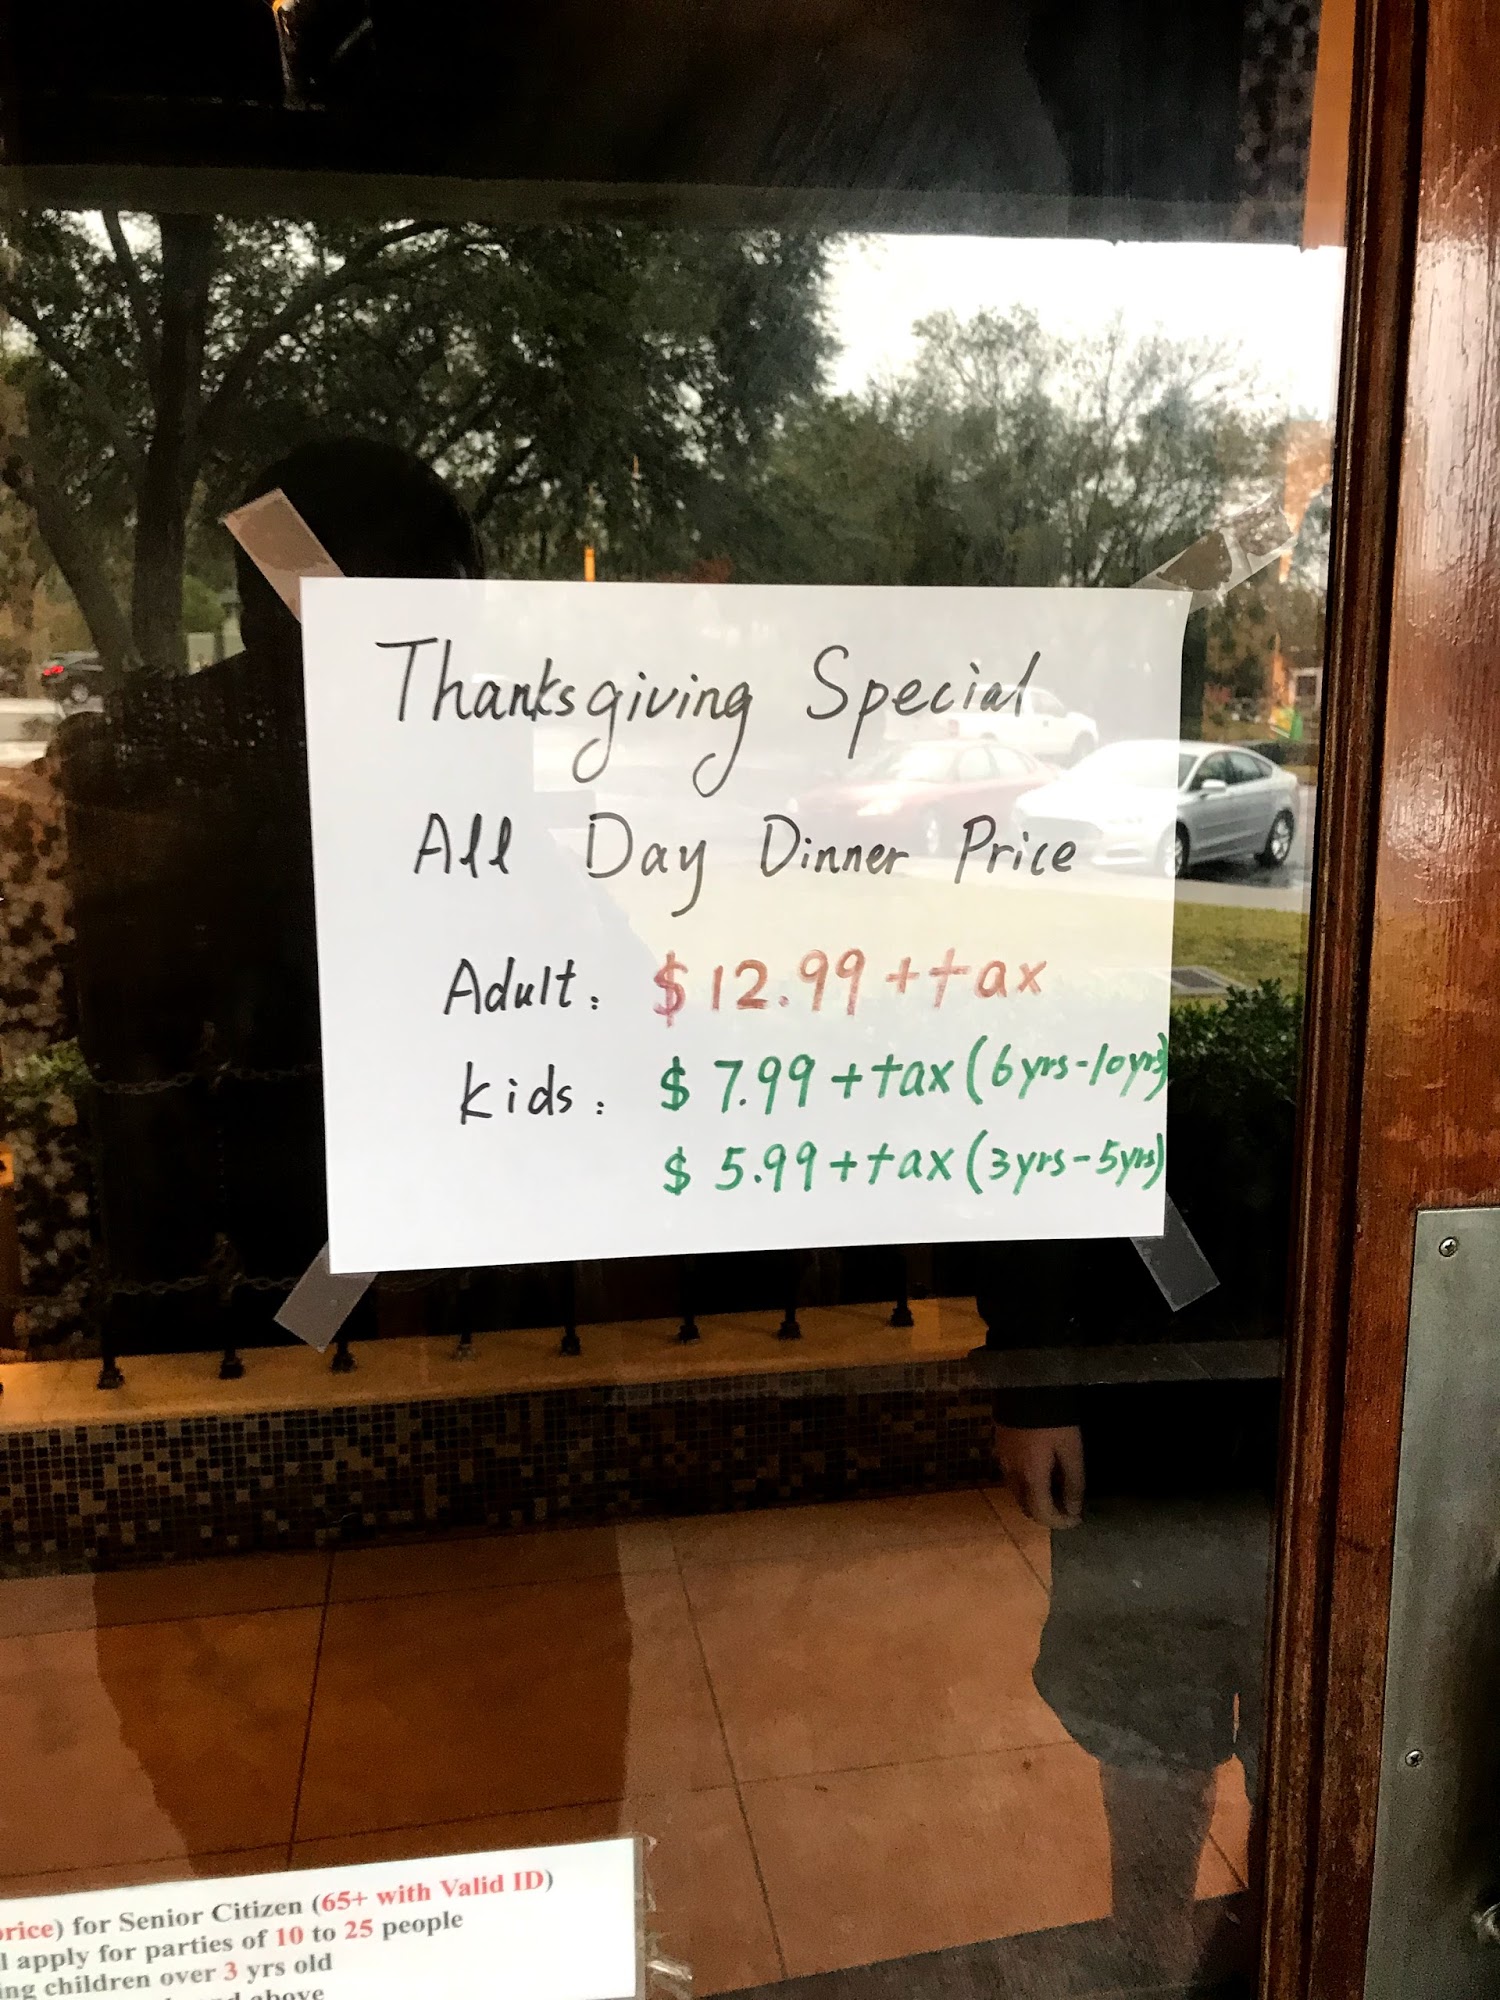 Thanksgiving Special
All Day Dinner Price
Adult: $12.99 + tax
Kids: $7.99 + tax (6yrs-10yrs)
$5.99 + tax (3yrs-5yrs)
price) for Senior Citizen (65+ with Valid ID)
l apply for parties of 10 to 25 people
ing children over 3 yrs old
and above